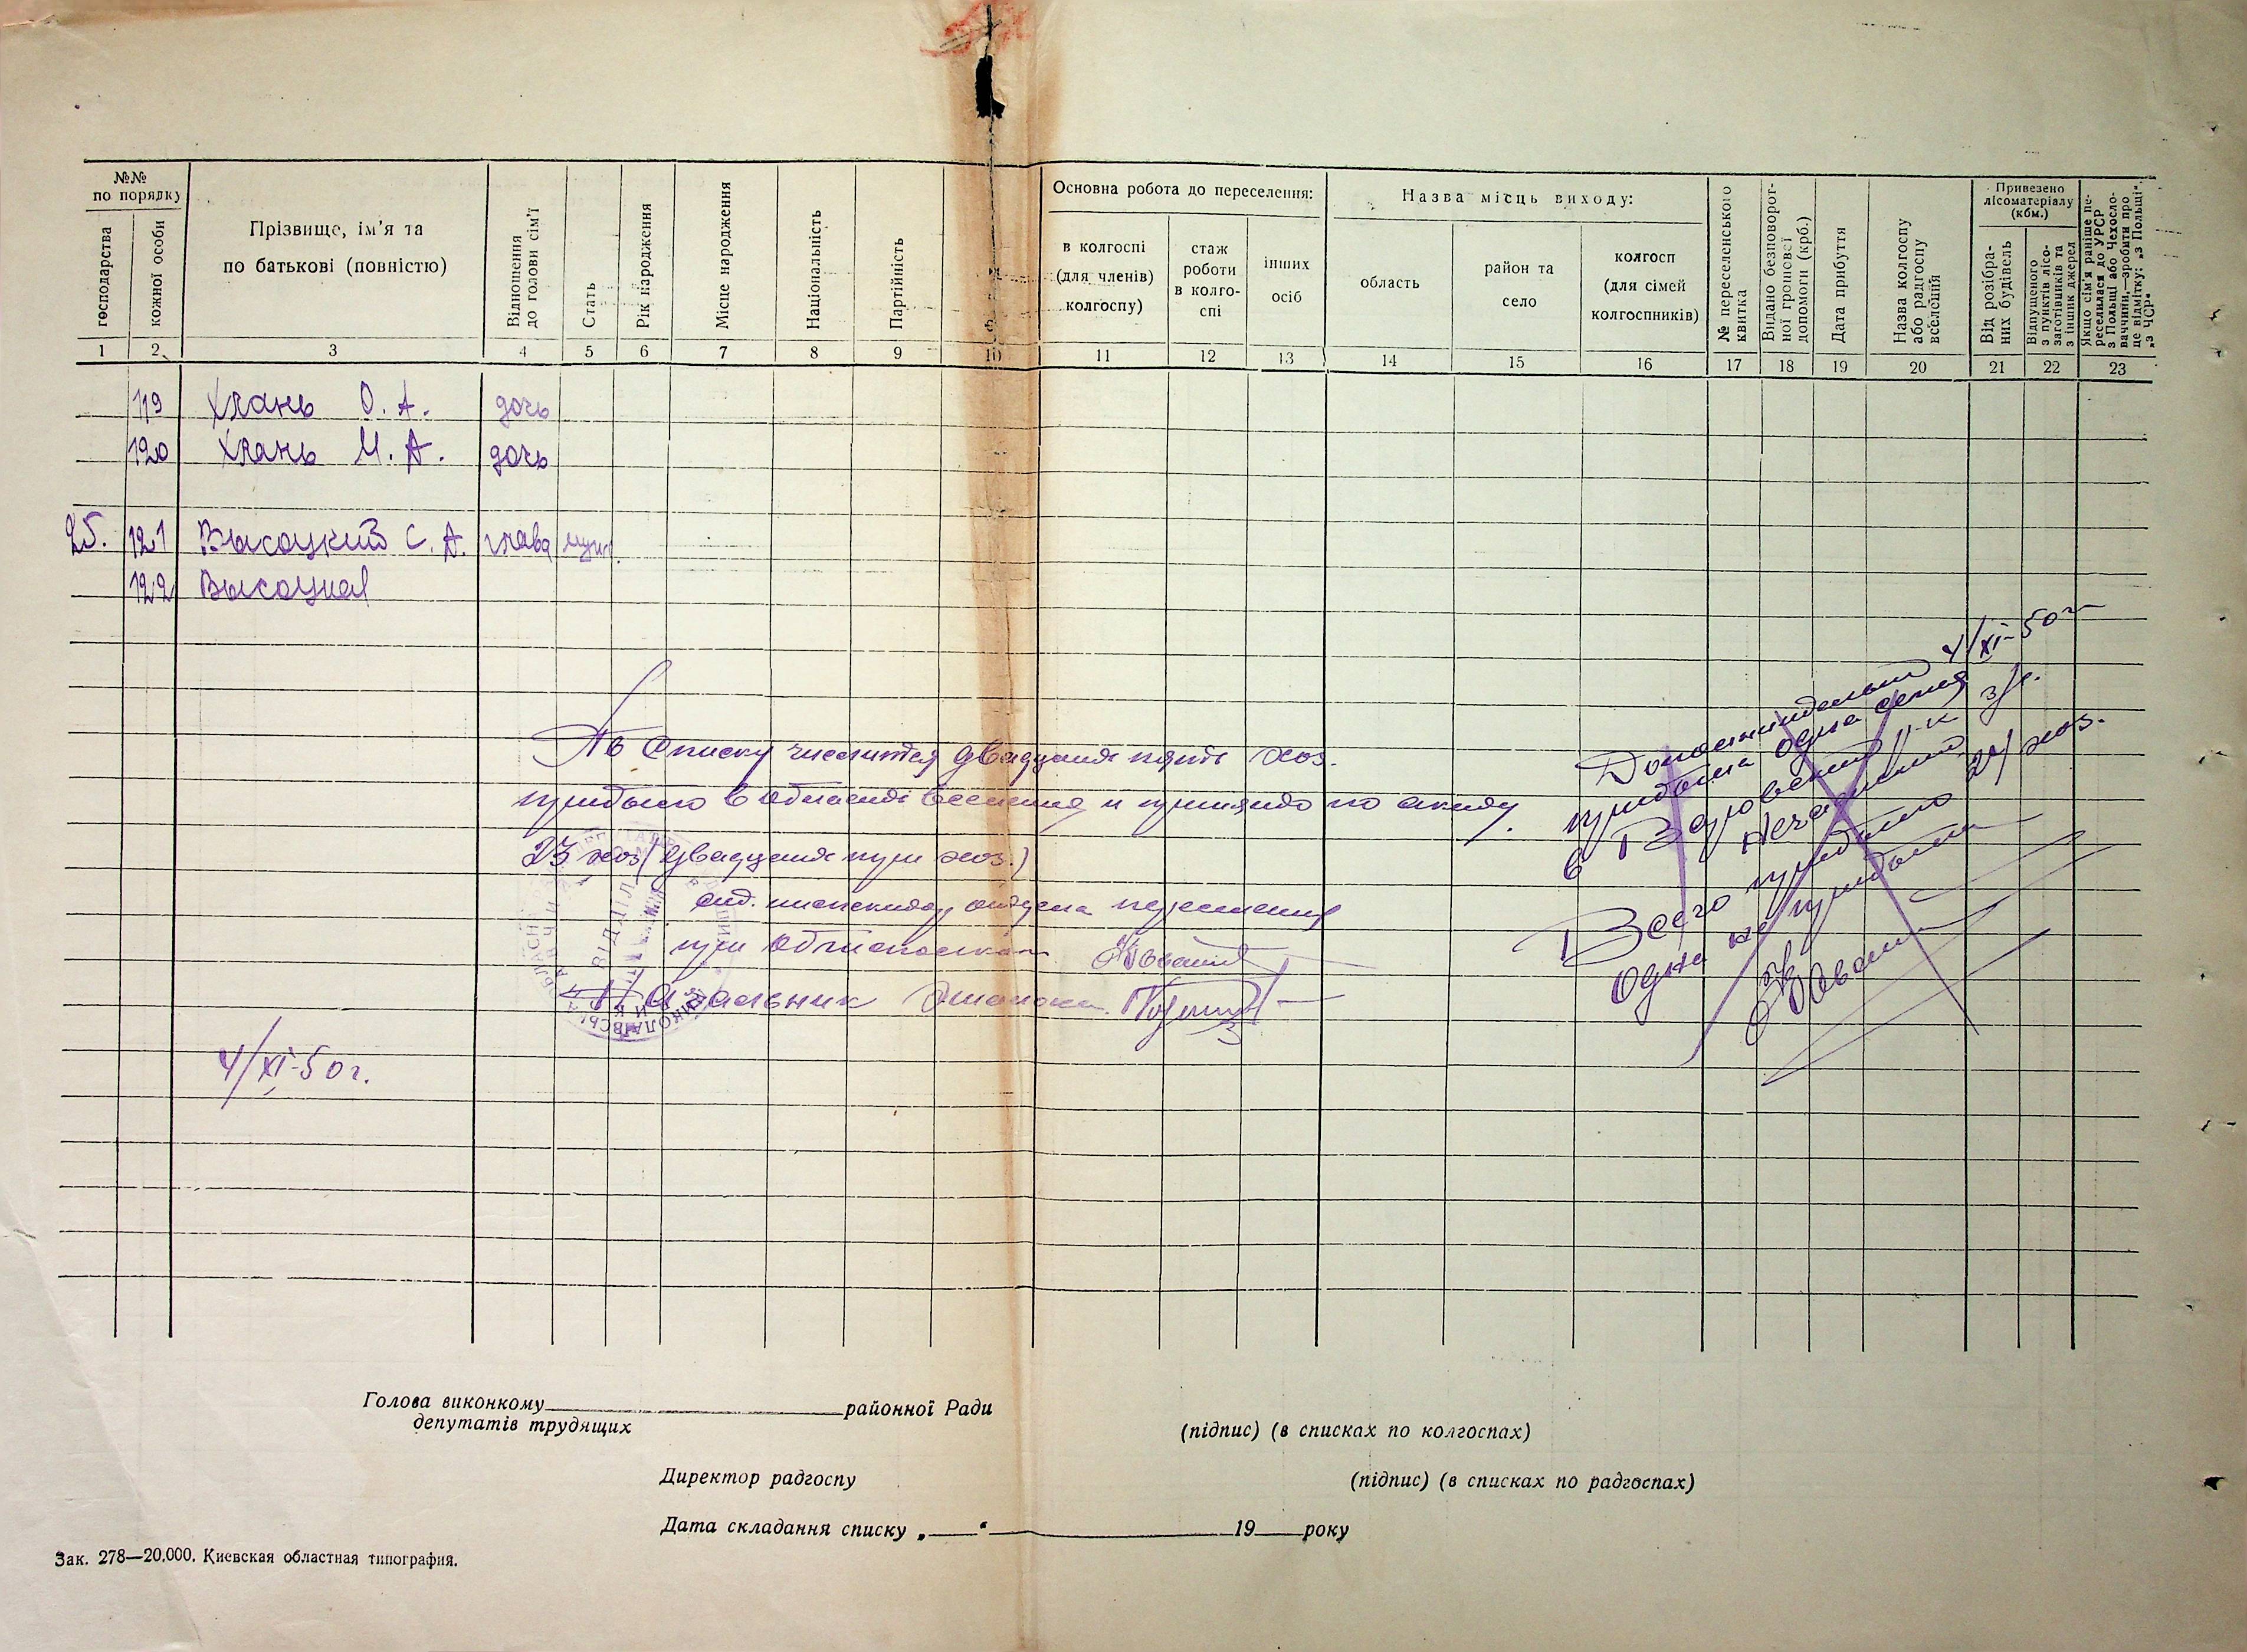 №№
по порядку
господарства
кожної особи
Прізвище, ім'я та
по батькові (повністю)
Відношення
до голови сім'ї
Стать
Рік народження
Місце народження
Національність
Партійність
Основна робота до переселення:
в колгоспі
(для членів)
колгоспу)
стаж
роботи
в колго-
спі
інших
осіб
Назва місць виходу:
область
район та
село
колгосп
(для сімей
колгоспників)
№ переселенського
квитка
Видано безповорот-
ної грошової
допомоги (крб.)
Дата прибуття
Назва колгоспу
або радгоспу
вселення
Привезено
лісоматеріалу
(кбм.)
Від розібра-
них будівель
Відпущеного
з пунктів лісо-
заготівників та
з інших джерел
Якщо сім'я раніше пе-
реселилася до УРСР
з Польщі або Чехосло-
ваччини,—зробити про
це відмітку: „з Польщі“,
„з ЧСР“
1 2 3 4 5 6 7 8 9 10 11 12 13 14 15 16 17 18 19 20 21 22 23
119 Хлань О. А. дочь
120 Хлань М. А. дочь
25. 121 Высоцкий С. А. глава муж.
122 Высоцкая
По списку числится двадцать пять хоз.
прибыло в область вселения и принято по акту
23 хоз (двадцать три хоз.)
инспектор отдела переселения
при
Начальник эшелона
4/XI-50г.
4/XI-50г
Дополнительно
прибыла одна семья
в
Всего прибыло 24 хоз.
Одна не прибыла
ВІДДІЛ
Голова виконкому районної Ради
депутатів трудящих
(підпис) (в списках по колгоспах)
Директор радгоспу (підпис) (в списках по радгоспах)
Дата складання списку „ “ 19 року
Зак. 278—20.000. Киевская областная типография.